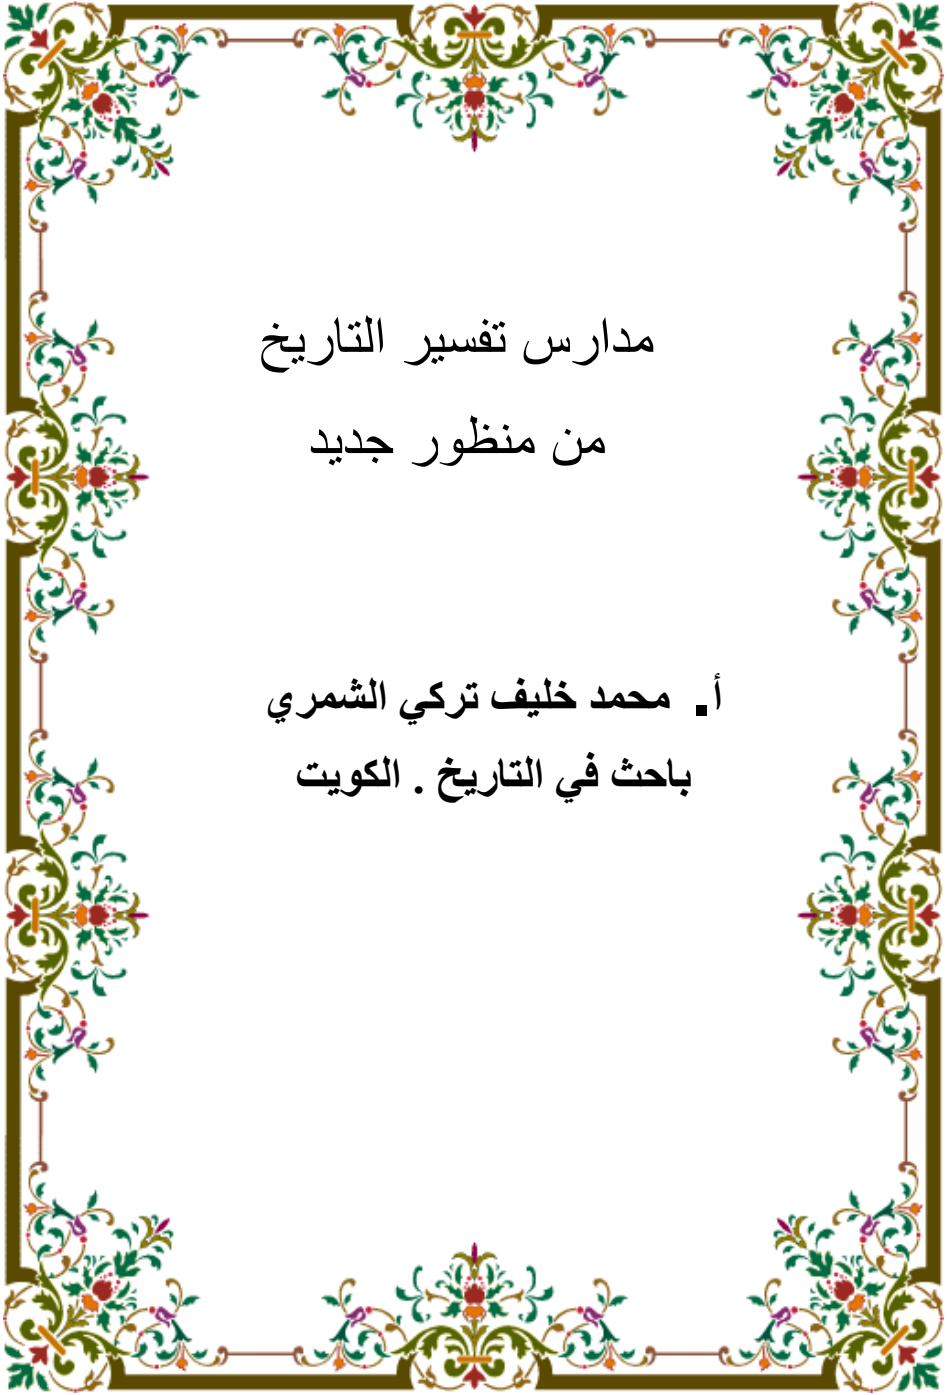 مدارس تفسير التاريخ
من منظور جديد
أ. محمد خليف تركي الشمري
باحث في التاريخ . الكويت